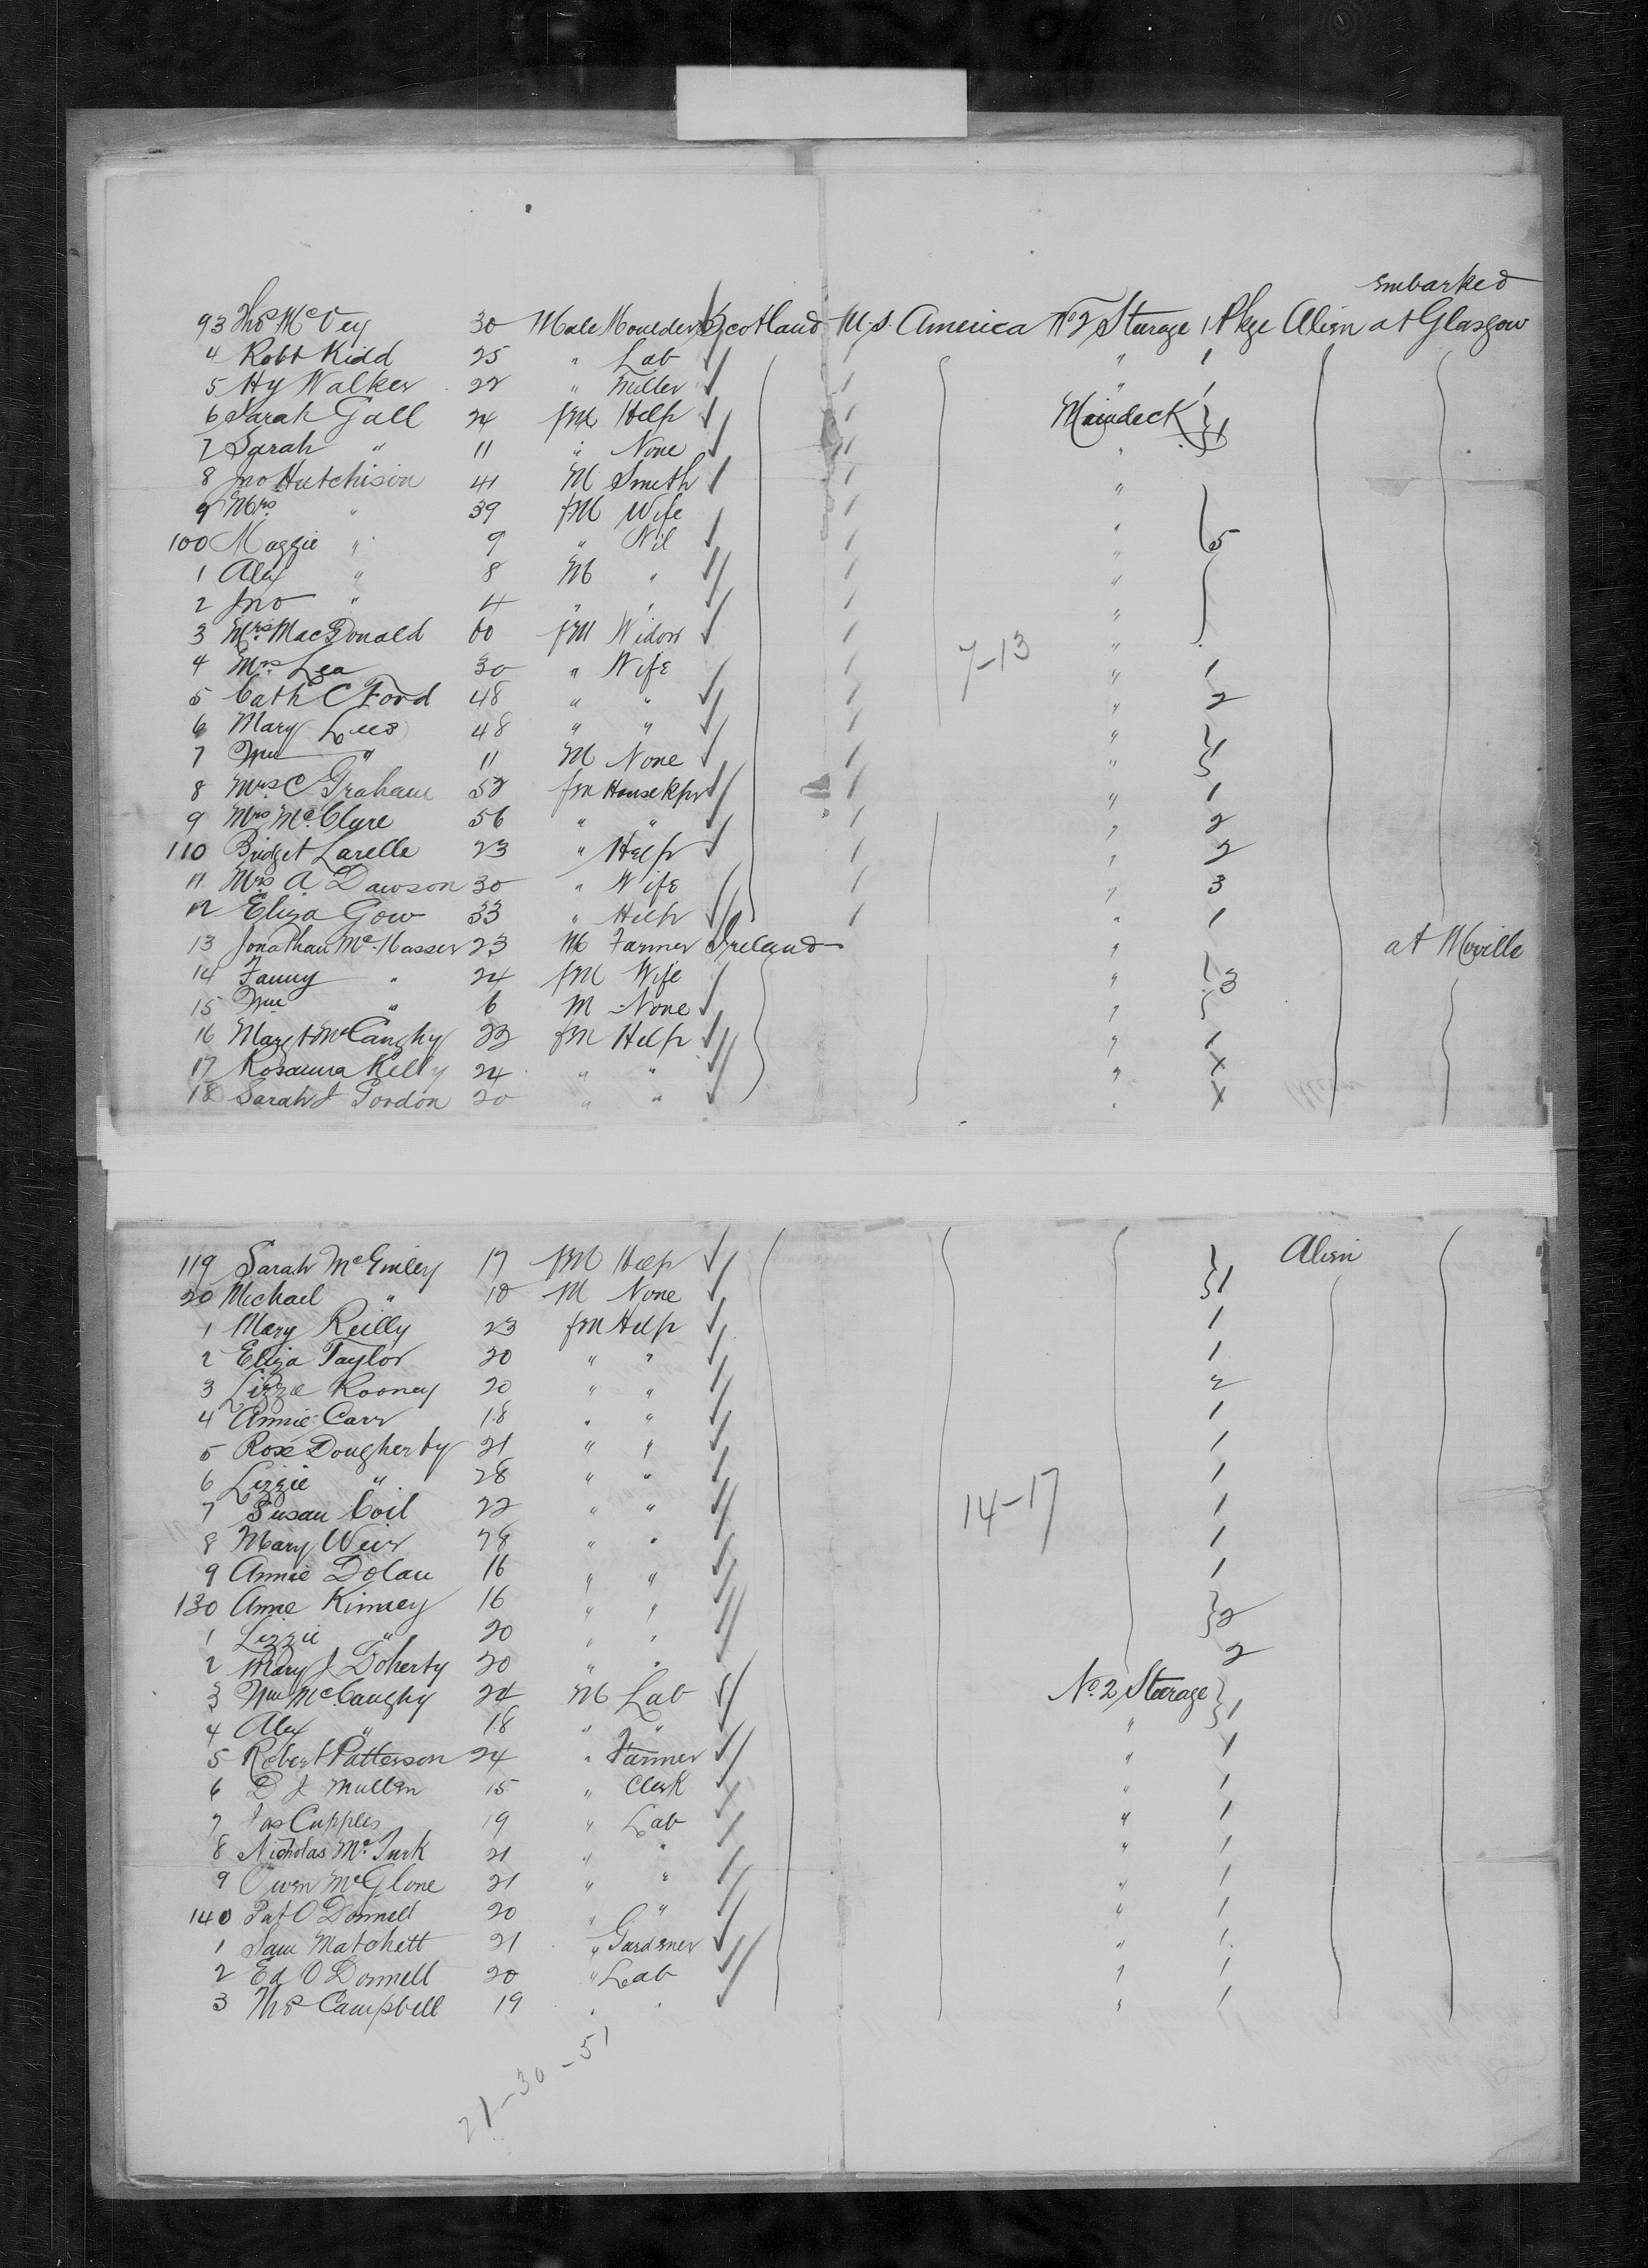 embarked
93 Thos McVey 30 Male Moulder Scotland U.S. America No 2 Steerage 1 Pkge Alien at Glasgow
4 Robt Kidd 25 " Lab " 1
5 Hy Walker 22 " Miller " 1
6 Sarah Gall 24 fM Help Maindeck
7 Sarah " 11 " None " 1
8 Jno Hutchison 41 M Smith "
9 Mrs " 39 fM Wife "
100 Maggie " 9 " Nil " 5
1 Alex " 8 M " "
2 Jno " 4 " " "
3 Mrs MacDonald 60 fM Widow "
4 Mrs Lea 30 " Wife " 1
7-13
5 Cath C Ford 48 " " " 2
6 Mary Lees 48 " " "
7 Wm " 11 M None " 1
8 Mrs C Graham 52 fM House Kpr " 1
9 Mrs McClure 56 " " " 2
110 Bridget Larelle 23 " Help " 2
11 Mrs A Dawson 30 " Wife " 3
12 Eliza Gow 33 " Help " 1
13 Jonathan McMasser 23 M Farmer Ireland " at Moville
14 Fanny " 24 fM Wife " 3
15 Wm " 6 M None "
16 Margt McCaughy 22 fM Help " 1
17 Rosanna Kelly 24 " " " X
18 Sarah J Gordon 20 " " " X
119 Sarah McGinley 17 fM Help Alien
20 Michael " 10 M None 1
1 Mary Reilly 23 fM Help 1
2 Eliza Taylor 20 " " 1
3 Lizzie Rooney 20 " " 2
4 Annie Carr 18 " " 1
5 Rose Dougherty 21 " " 1
6 Lizzie " 28 " " 1
7 Susan Coil 22 " " 1
14-17
8 Mary Weir 28 " " 1
9 Annie Dolan 16 " " 1
130 Annie Kinney 16 " " 2
1 Lizzie " 20 " "
2 Mary J Doherty 20 " " 2
3 Wm McCaughy 24 M Lab No. 2 Steerage 1
4 Alex " 18 " " "
5 Robert Patterson 24 " Farmer " 1
6 D J Mullen 15 " Clerk " 1
7 Jas Cupples 19 " Lab " 1
8 Nicholas McTurk 21 " " " 1
9 Owen McGlone 21 " " " 1
140 Pat O Donnell 20 " " " 1
1 Sam Matchett 21 " Gardener " 1
2 Ed O Donnell 20 " Lab " 1
3 Thos Campbell 19 " " " 1
21-30-51